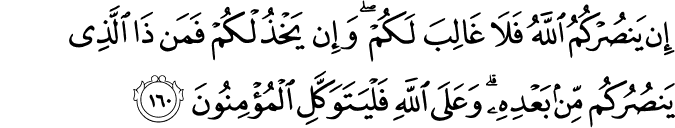 إِن يَنصُرْكُمُ ٱللَّهُ فَلَا غَالِبَ لَكُمْ ۖ وَإِن يَخْذُلْكُمْ فَمَن ذَا ٱلَّذِى
يَنصُرُكُم مِّنۢ بَعْدِهِۦ ۗ وَعَلَى ٱللَّهِ فَلْيَتَوَكَّلِ ٱلْمُؤْمِنُونَ ١٦٠